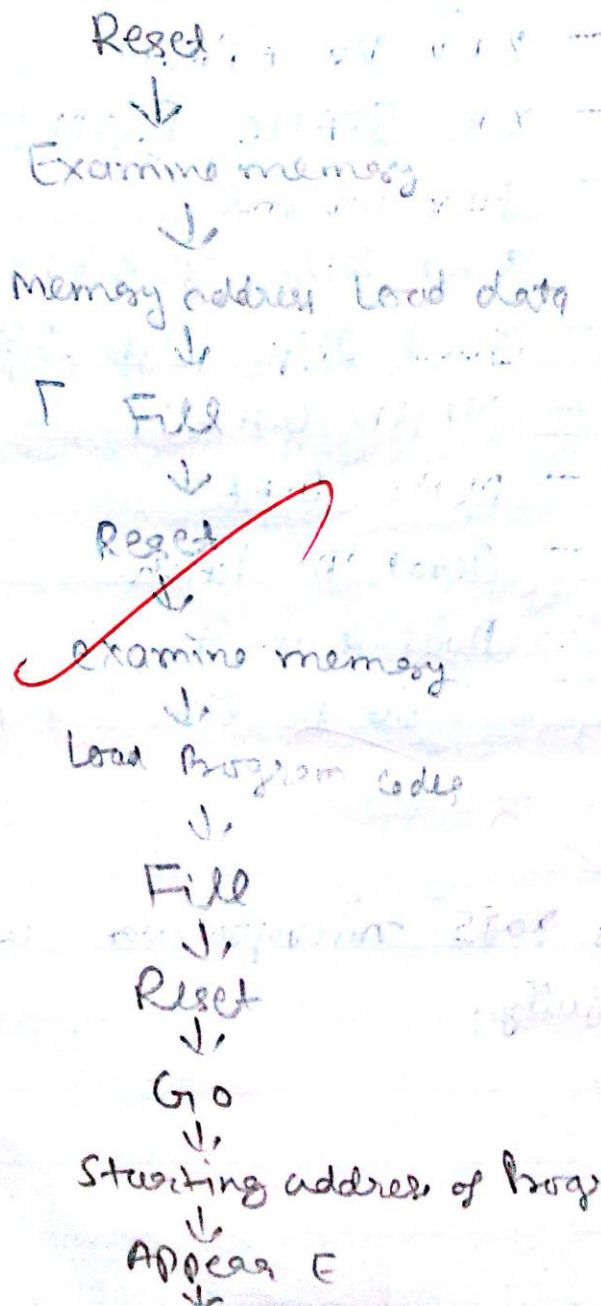 Reset
↓
Examine memory
↓
Memory address Load data
↓
Fill
↓
Reset
↓
examine memory
↓
Load Program codes
↓
Fill
↓
Reset
↓
Go
↓
Starting address of Prog
↓
Appear E
↓